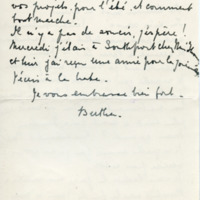 vos projets, pour l'été, et comment
tout marche!
Il n'y a pas de soucis, j'espère!
Mercredi j'étais à Southport chez
et hier j'ai reçu une amie pour la journée.
J'écris à la hate.
Je vous embrasse bien fort.
Berthe.